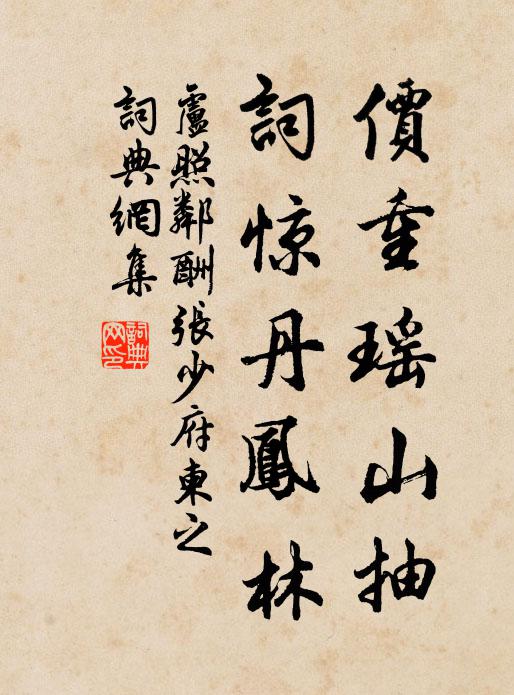 價重瑶山抽
詞惊丹鳳林
盧照鄰酬張少府東之
詞典網集
詞典网印